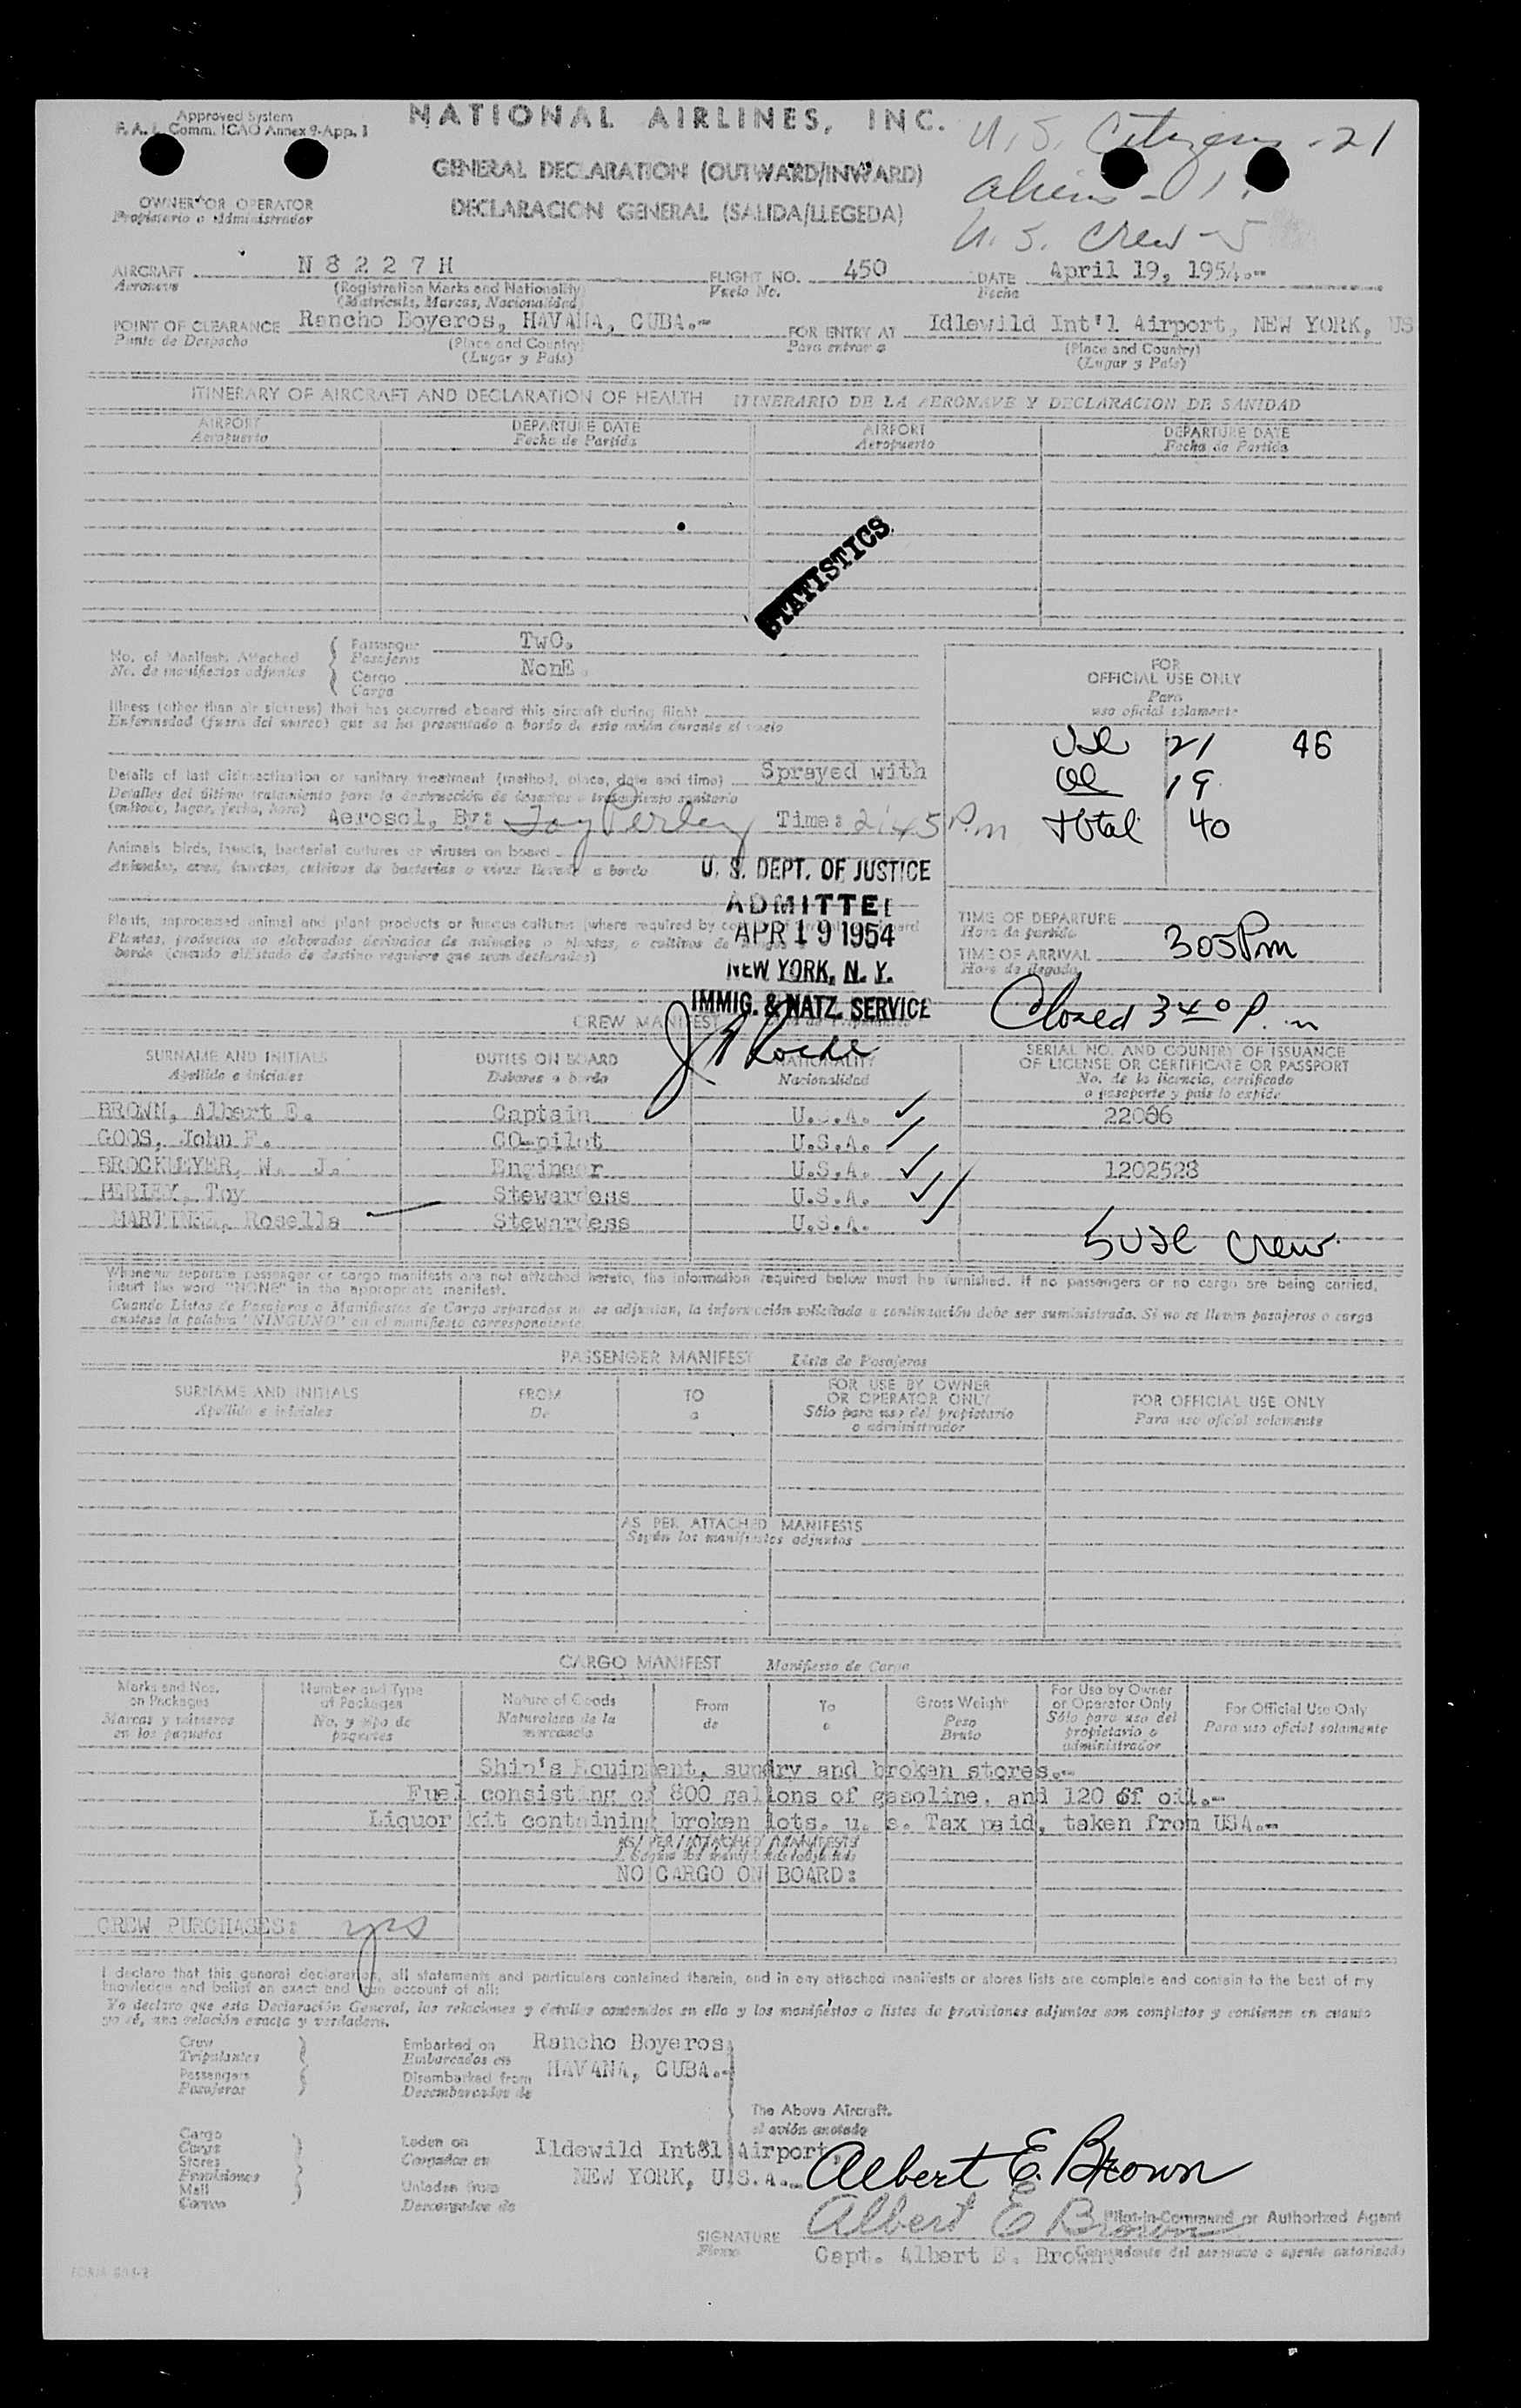 Approved System
F. A. L. Comm. ICAO Annex 9-App. 1
NATIONAL AIRLINES, INC.
U. S. Citizens - 21
GENERAL DECLARATION (OUTWARD/INWARD)
Aliens -
OWNER OR OPERATOR
Propietario o Administrador
DECLARACION GENERAL (SALIDA/LLEGEDA)
U. S. Crew - 5
AIRCRAFT N 8 2 2 7 H FLIGHT NO. 450 DATE April 19, 1954.-
Aeronave (Registration Marks and Nationality) Vuelo No. Fecha
(Matricula, Marcas, Nacionalidad)
POINT OF CLEARANCE Rancho Boyeros, HAVANA, CUBA.- FOR ENTRY AT Idlewild Int'l Airport, NEW YORK, US
Punto de Despacho (Place and Country) Para entrar a (Place and Country)
(Lugar y Pais) (Lugar y Pais)
ITINERARY OF AIRCRAFT AND DECLARATION OF HEALTH ITINERARIO DE LA AERONAVE Y DECLARACION DE SANIDAD
AIRPORT DEPARTURE DATE AIRPORT DEPARTURE DATE
Aeropuerto Fecha de Partida Aeropuerto Fecha de Partida
STATISTICS
No. of Manifests Attached Passenger TwO.
No. de manifiestos adjuntos Pasajeros
Cargo NonE.
Carga
FOR
OFFICIAL USE ONLY
Para
uso oficial solamente
Illness (other than air sickness) that has occurred aboard this aircraft during flight
Enfermedad (fuera del mareo) que se ha presentado a bordo de este avión durante el vuelo
21 46
19
Total 40
Details of last disinsectization or sanitary treatment (method, place, date and time) Sprayed with
Detalles del último tratamiento para la destrucción de insectos o tratamiento sanitario
(método, lugar, fecha, hora) Aerosol, By: Toy Perley Time: 2:45 P.m
Animals, birds, insects, bacterial cultures or viruses on board
Animales, aves, insectos, cultivos de bacterias o virus llevado a bordo
U. S. DEPT. OF JUSTICE
ADMITTE
APR 19 1954
NEW YORK, N. Y.
IMMIG. & NATZ. SERVICE
Plants, unprocessed animal and plant products or fungus cultures (where required by
Plantas, productos no elaborados derivados de animales o plantas, o cultivos de
bordo (cuando el Estado de destino requiere que sean declarados)
TIME OF DEPARTURE
Hora de partida
305 Pm
TIME OF ARRIVAL
Hora de llegada
Closed 3 40 P. m
CREW MANIFEST
SURNAME AND INITIALS DUTIES ON BOARD NATIONALITY SERIAL NO. AND COUNTRY OF ISSUANCE
OF LICENSE OR CERTIFICATE OR PASSPORT
Apellido e iniciales Labores a bordo Nacionalidad No. de la licencia, certificado
o pasaporte y pais lo expide
BROWN, Albert E. Captain U.S.A. 22086
GOOS, John F. CO-pilot U.S.A.
BROCKMEYER, W. J. Engineer U.S.A. 1202528
PERLEY, Toy Stewardess U.S.A.
MARTINEZ, Rosella Stewardess U.S.A.
5 USC Crew
Whenever separate passenger or cargo manifests are not attached hereto, the information required below must be furnished. If no passengers or no cargo are being carried,
insert the word "NONE" in the appropriate manifest.
Cuando Listas de Pasajeros o Manifiestos de Carga separados no se adjuntan, la información solicitada a continuación debe ser suministrada. Si no se lleven pasajeros o carga
anotese la palabra "NINGUNO" en el manifiesto correspondiente.
PASSENGER MANIFEST Lista de Pasajeros
SURNAME AND INITIALS FROM TO FOR USE BY OWNER
OR OPERATOR ONLY FOR OFFICIAL USE ONLY
Apellido e iniciales De a Sólo para uso del propietario
o administrador Para uso oficial solamente
AS PER ATTACHED MANIFESTS
Según los manifiestos adjuntos
CARGO MANIFEST Manifiesto de Carga
Marks and Nos.
on Packages
Marcas y números
en los paquetes
Number and Type
of Packages
No. y tipo de
paquetes
Nature of Goods
Naturaleza de la
mercancia
From
de
To
a
Gross Weight
Peso
Bruto
For Use by Owner
or Operator Only
Sólo para uso del
propietario o
administrador
For Official Use Only
Para uso oficial solamente
Ship's Equipment, sundry and broken stores.--
Fuel consisting of 800 gallons of gasoline, and 120 of oil.-
Liquor kit containing broken lots. u. s. Tax paid, taken from USA.--
AS PER ATTACHED MANIFESTS
NO CARGO ON BOARD:
CREW PURCHASES: yes
I declare that this general declaration, all statements and particulars contained therein, and in any attached manifests or stores lists are complete and contain to the best of my
knowledge and belief an exact and true account of all:
Yo declaro que esta Declaración General, las relaciones y detalles contenidos en ella y los manifiestos o listas de provisiones adjuntos son completos y contienen en cuanto
yo sé, una relación exacta y verdadera.
Crew
Tripulantes
Passengers
Pasajeros
Embarked on Rancho Boyeros,
Embarcados en
Disembarked from HAVANA, CUBA.-
Desembarcados de
The Above Aircraft.
el avión anotado
Cargo
Carga
Stores
Provisiones
Mail
Correo
Laden on Ildewild Int'l Airport,
Cargados en NEW YORK, U.S.A.--
Unladen from
Descargados de
Albert E. Brown
Albert E Brown
Pilot-in-Command or Authorized Agent
SIGNATURE
Firma
Capt. Albert E. Brown
Comandante del aeronave o agente autorizado